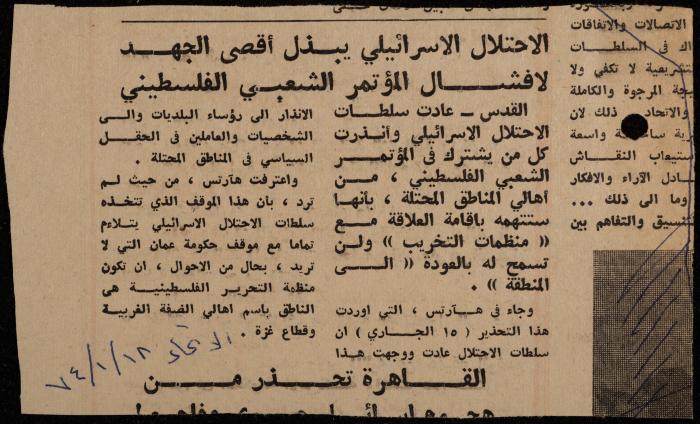 الاحتلال الاسرائيلي يبذل أقصى الجهد
لافشال المؤتمر الشعبي الفلسطيني
القدس ـ عادت سلطات
الاحتلال الاسرائيلي وأنذرت
كل من يشترك في المؤتمر
الشعبي الفلسطيني ، من
أهالي المناطق المحتلة ، بأنها
ستتهمه باقامة العلاقة مع
(( منظمات التخريب )) ولن
تسمح له بالعودة (( الى
المنطقة )) .
وجاء في هآرتس ، التي اوردت
هذا التحذير ( ١٥ الجاري ) ان
سلطات الاحتلال عادت ووجهت هذا
الانذار الى رؤساء البلديات والى
الشخصيات والعاملين في الحقل
السياسي في المناطق المحتلة .
واعترفت هآرتس ، من حيث لم
ترد ، بان هذا الموقف الذي تتخذه
سلطات الاحتلال الاسرائيلي يتلاءم
تماما مع موقف حكومة عمان التي لا
تريد ، بحال من الاحوال ، ان تكون
منظمة التحرير الفلسطينية هي
الناطق باسم اهالي الضفة الغربية
وقطاع غزة .
الاتحاد ٧٤/١/١٨
القاهرة تحذر من
الاتصالات والاتفاقات
اك في السلطات
لتشريعية لا تكفي ولا
يجة المرجوة والكاملة
والاتحاد ذلك لان
واسعة
استيعاب النقاش
ادل الآراء والافكار
وما الى ذلك ...
تنسيق والتفاهم بين